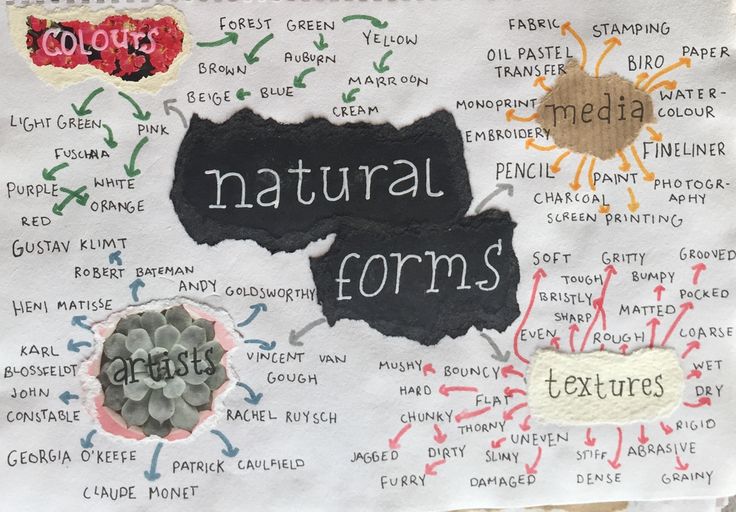 COLOURS
FOREST GREEN
YELLOW
BROWN
AUBURN
BEIGE
BLUE
MARROON
CREAM
LIGHT GREEN
PINK
FUSCHIA
PURPLE
WHITE
RED
ORANGE
natural
forms
media
FABRIC
STAMPING
OIL PASTEL
TRANSFER
BIRO
PAPER
MONOPRINT
WATER-
COLOUR
EMBROIDERY
FINELINER
PENCIL
PAINT
PHOTOGR-
APHY
CHARCOAL
SCREEN PRINTING
artists
GUSTAV KLIMT
ROBERT BATEMAN
ANDY GOLDSWORTHY
HENI MATISSE
KARL
BLOSSFELDT
VINCENT VAN
GOUGH
JOHN
CONSTABLE
RACHEL RUYSCH
GEORGIA O'KEEFE
PATRICK CAULFIELD
CLAUDE MONET
textures
SOFT
GRITTY
GROOVED
TOUGH
BUMPY
BRISTLY
POCKED
SHARP
MATTED
EVEN
ROUGH
LOARSE
MUSHY
BOUNCY
WET
HARD
FLAT
DRY
CHUNKY
THORNY
RIGID
JAGGED
DIRTY
SLIMY
UNEVEN
STIFF
ABRASIVE
FURRY
DAMAGED
DENSE
GRAINY